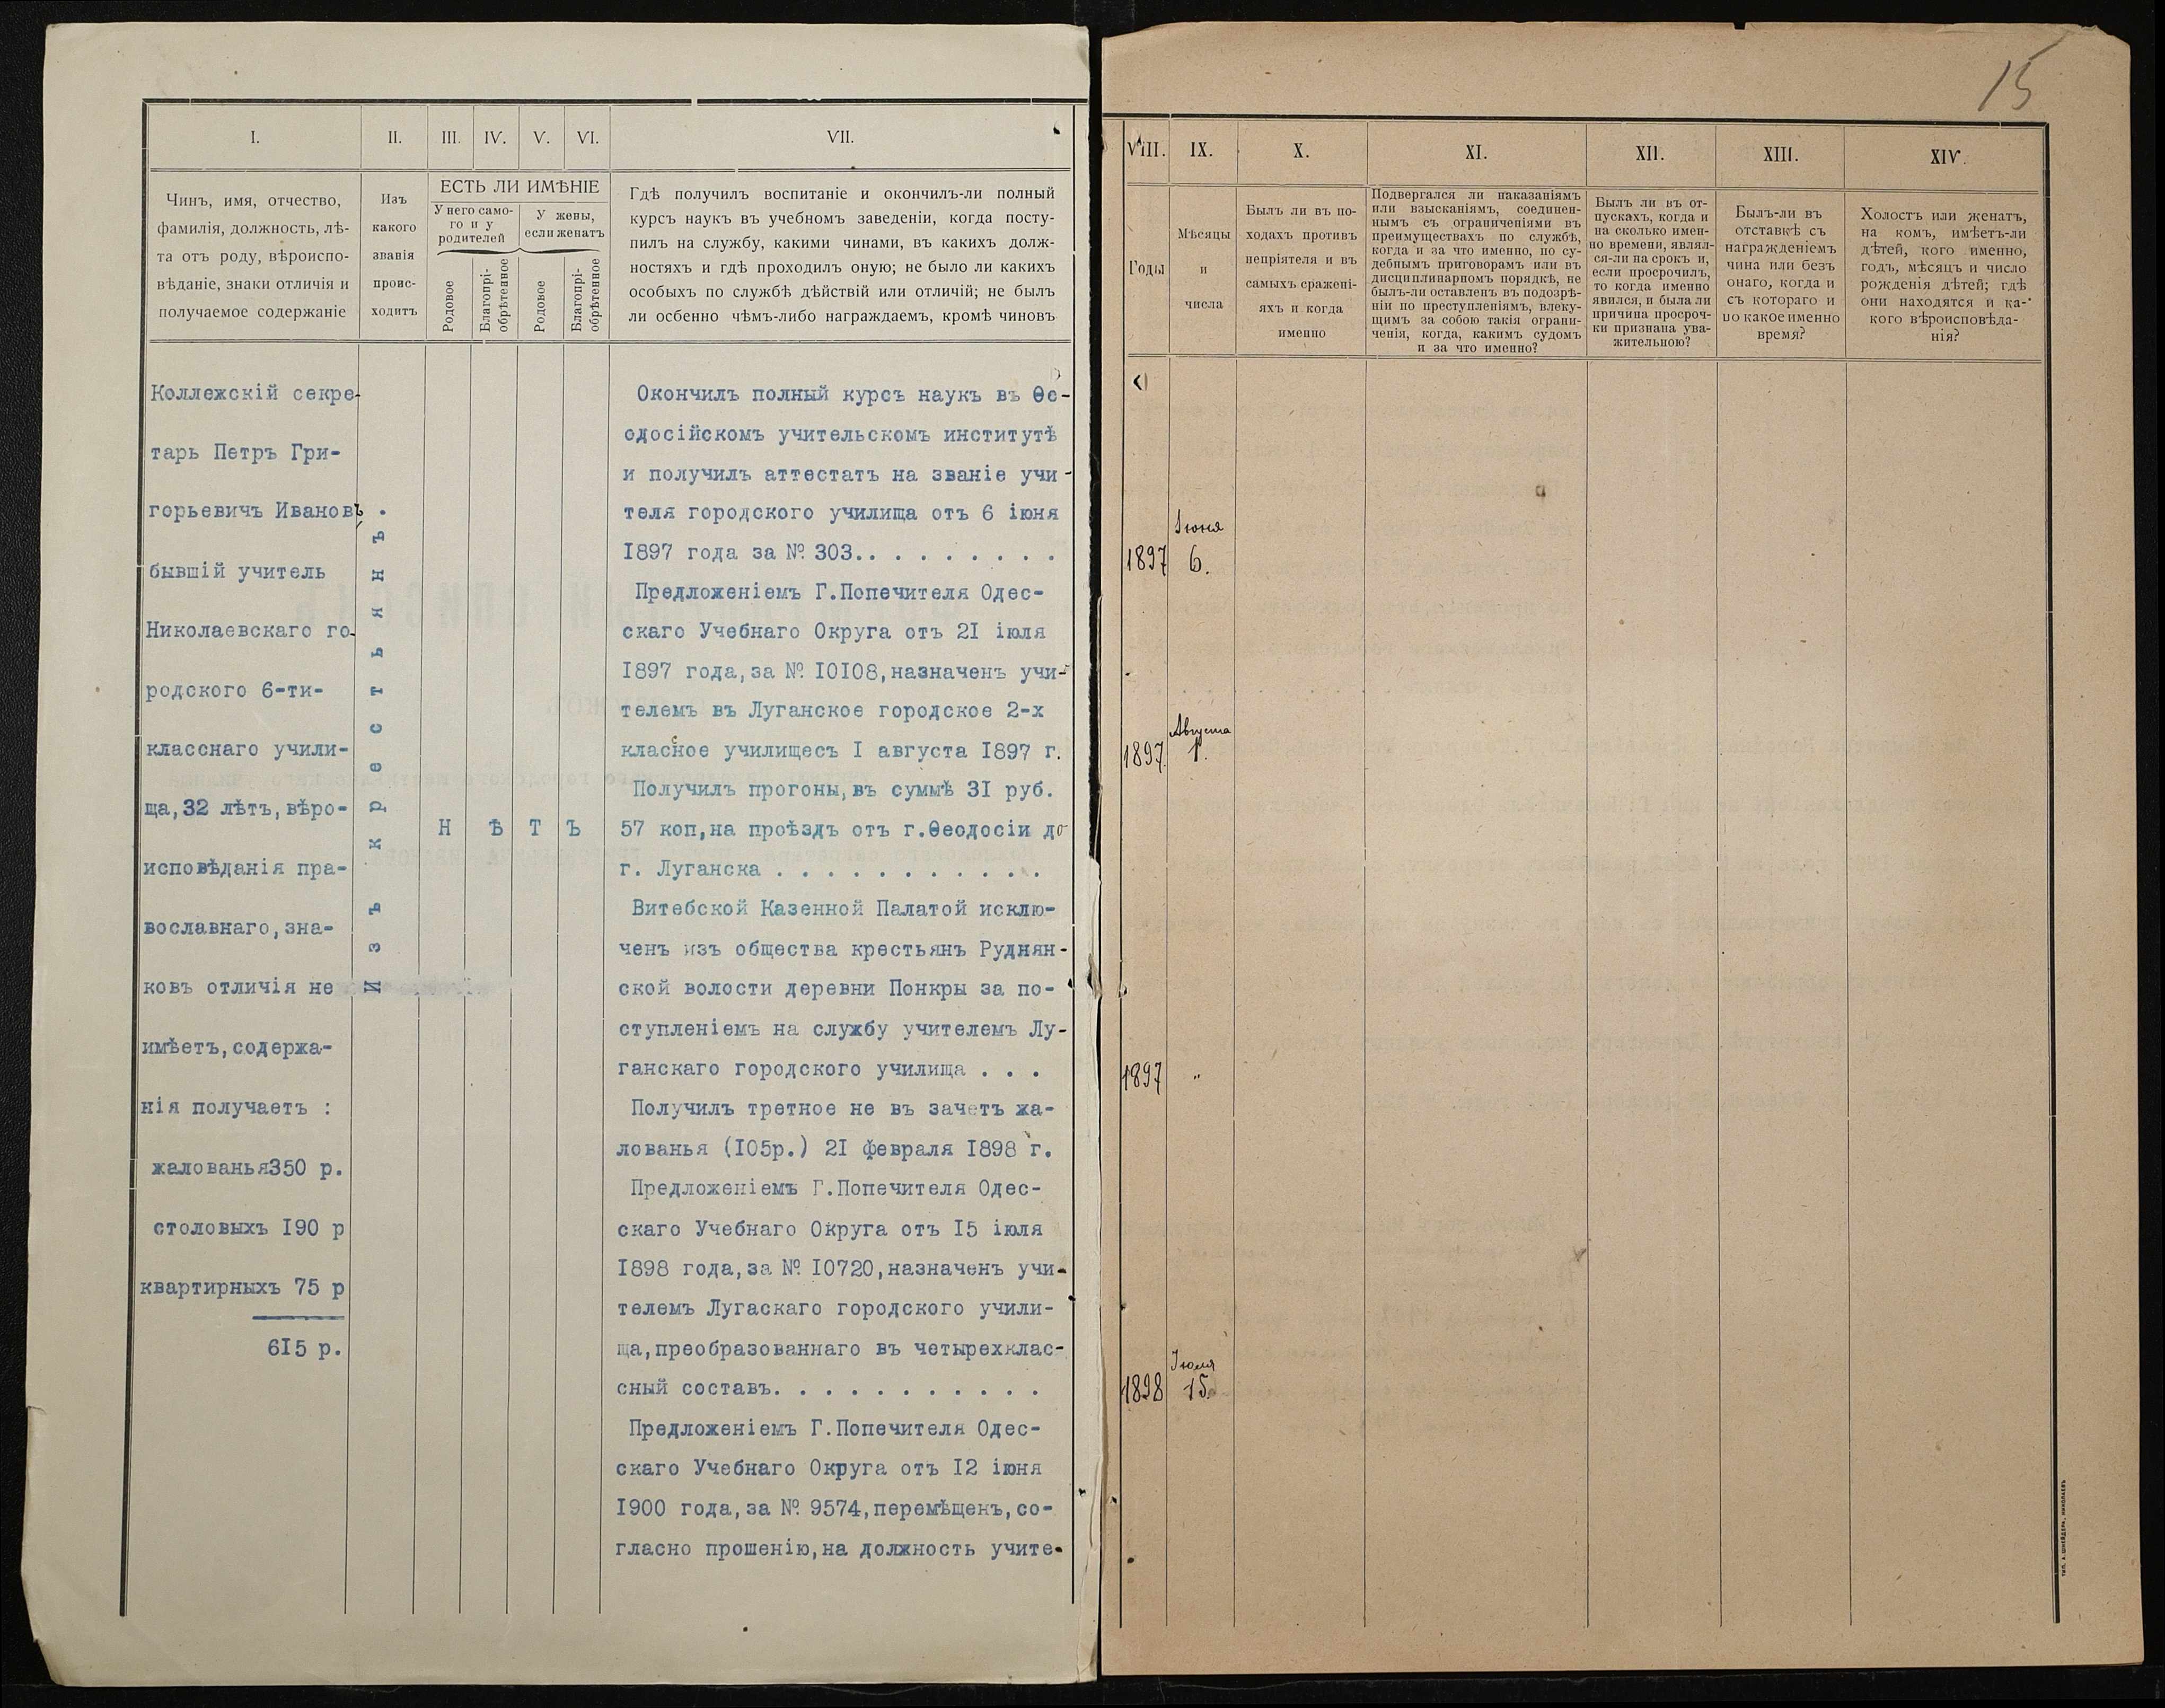 15
I.
II.
III.
IV.
V.
VI.
VII.
Чинъ, имя, отчество,
фамилія, должность, лѣ-
та отъ роду, вѣроиспо-
вѣданіе, знаки отличія и
получаемое содержаніе
Изъ
какого
званія
проис-
ходитъ
ЕСТЬ ЛИ ИМѢНІЕ
У него само-
го и у
родителей
У жены,
если женатъ
Родовое
Благопрі-
обрѣтенное
Родовое
Благопрі-
обрѣтенное
Гдѣ получилъ воспитаніе и окончилъ-ли полный
курсъ наукъ въ учебномъ заведеніи, когда посту-
пилъ на службу, какими чинами, въ какихъ долж-
ностяхъ и гдѣ проходилъ оную; не было ли какихъ
особыхъ по службѣ дѣйствій или отличій; не былъ
ли осбенно чѣмъ-либо награждаемъ, кромѣ чиновъ
Коллежскій секре-
тарь Петръ Гри-
горьевичъ Ивановъ,
бывшій учитель
Николаевскаго го-
родского 6-ти-
класснаго учили-
ща,32 лѣтъ,вѣро-
исповѣданія пра-
вославнаго,зна-
ковъ отличія не
имѣетъ,содержа-
нія получаетъ :
жалованья350 р.
столовыхъ I90 р
квартирныхъ 75 р
6I5 р.
Изъ крестьянъ.
Н Ѣ Т Ъ
Окончилъ полный курсъ наукъ въ Ѳе-
одосійскомъ учительскомъ институтѣ
и получилъ аттестатъ на званіе учи-
теля городского училища отъ 6 іюня
I897 года за № 303.. . . . . . . . .
Предложеніемъ Г.Попечителя Одес-
скаго Учебнаго Округа отъ 2I іюля
I897 года,за № I0I08,назначенъ учи-
телемъ въ Луганское городское 2-х
класное училищесъ I августа I897 г.
Получилъ прогоны,въ суммѣ 3I руб.
57 коп,на проѣздъ отъ г.Ѳеодосіи до
г. Луганска . . . . . . . . . . .
Витебской Казенной Палатой исклю-
ченъ изъ общества крестьянъ Руднян-
ской волости деревни Понкры за по-
ступленіемъ на службу учителемъ Лу-
ганскаго городского училища . . .
Получилъ третное не въ зачетъ жа-
лованья (I05р.) 2I февраля I898 г.
Предложеніемъ Г.Попечителя Одес-
скаго Учебнаго Округа отъ I5 іюля
I898 года,за № I0720,назначенъ учи-
телемъ Лугаскаго городского учили-
ща,преобразованнаго въ четырехклас-
сный составъ. . . . . . . . . . .
Предложеніемъ Г.Попечителя Одес-
скаго Учебнаго Округа отъ I2 іюня
I900 года,за № 9574,перемѣщенъ,со-
гласно прошенію,на должность учите-
VIII.
IX.
X.
XI.
XII.
XIII.
XIV.
Годы
Мѣсяцы
и
числа
Былъ ли въ по-
ходахъ противъ
непріятеля и въ
самыхъ сражені-
яхъ и когда
именно
Подвергался ли наказаніямъ
или взысканіямъ, соединен-
нымъ съ ограниченіями въ
преимуществахъ по службѣ,
когда и за что именно, по су-
дебнымъ приговорамъ или въ
дисциплинарномъ порядкѣ, не
былъ-ли оставленъ въ подозрѣ-
ніи по преступленіямъ, влеку-
щимъ за собою такія ограни-
ченія, когда, какимъ судомъ
и за что именно?
Былъ ли въ от-
пускахъ, когда и
на сколько имен-
но времени, являл-
ся-ли на срокъ и,
если просрочилъ,
то когда именно
явился, и была ли
причина просроч-
ки признана ува-
жительною?
Былъ-ли въ
отставкѣ съ
награжденіемъ
чина или безъ
онаго, когда и
съ котораго и
по какое именно
время?
Холостъ или женатъ,
на комъ, имѣетъ-ли
дѣтей, кого именно,
годъ, мѣсяцъ и число
рожденія дѣтей; гдѣ
они находятся и ка-
кого вѣроисповѣда-
нія?
Іюня
1897 6.
Августа
1897 1.
1897 "
Іюля
1898 15.
ТИП. А. ШНЕЙДЕРЪ, НИКОЛАЕВЪ